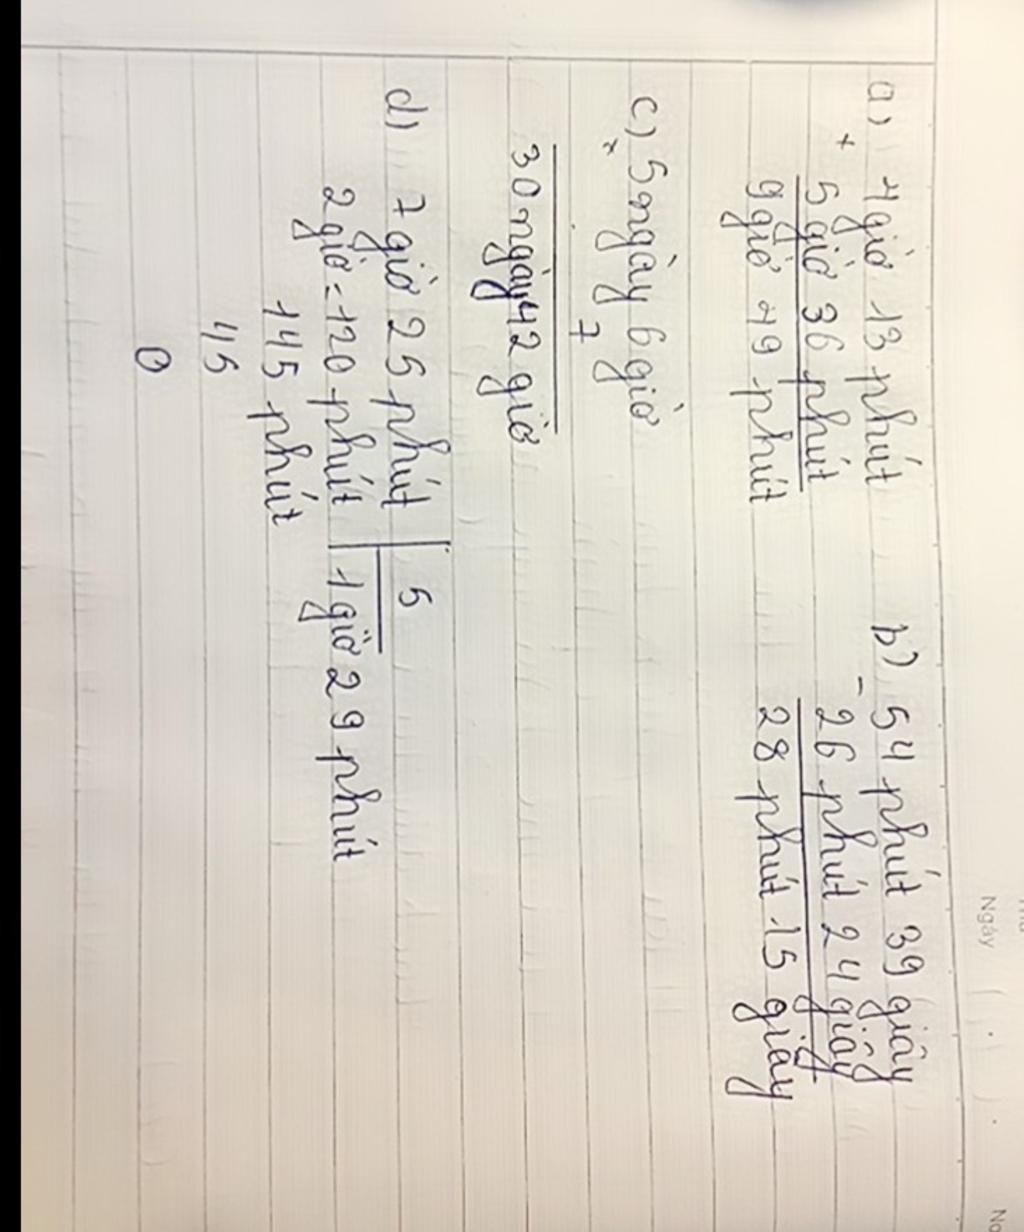 Ngày
a) 4 giờ 13 phút
+
5 giờ 36 phút
9 giờ 49 phút
b) 54 phút 39 giây
-
26 phút 24 giây
28 phút 15 giây
c) 5 ngày 6 giờ
×
7
30 ngày 42 giờ
d) 7 giờ 25 phút | 5
2 giờ = 120 phút | 1 giờ 29 phút
145 phút
45
0